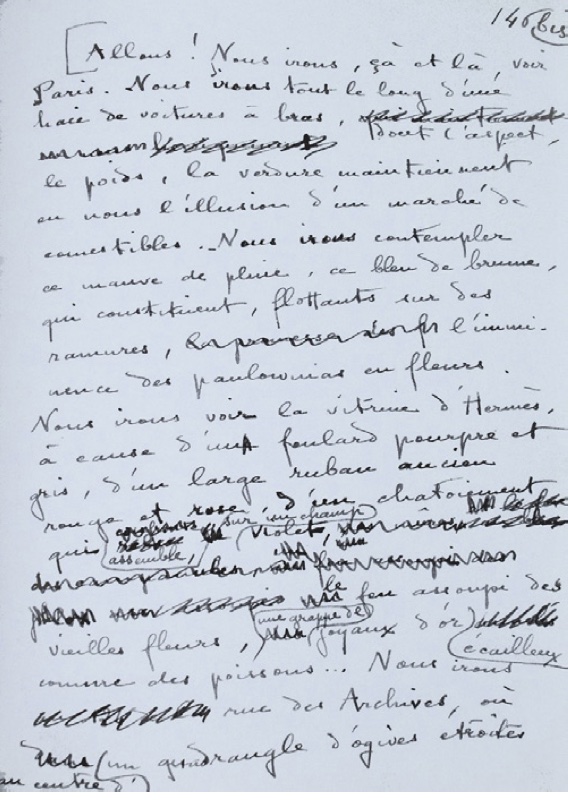 146 bis
[Allons ! Nous irons, çà et là, voir
Paris. Nous irons tout le long d'une
haie de voitures à bras, dont l'aspect,
le poids, la verdure maintiennent
en nous l'illusion d'un marché de
comestibles. Nous irons contempler
ce mauve de pluie, ce bleu de brume,
qui constituent, flottants sur des
ramures, l'immi-
nence des paulownias en fleurs.
Nous irons voir la vitrine d'Hermès,
à cause d'un foulard pourpre et
gris, d'un large ruban ancien
rouge et rose, d'un chatoiement
sur un champ
qui violet,
assemble,
le feu assoupi des
une grappe de
vieilles fleurs, joyaux d'or
écailleux
comme des poissons... Nous irons
rue des Archives, où
(un quadrangle d'ogives étroites
au centre d')